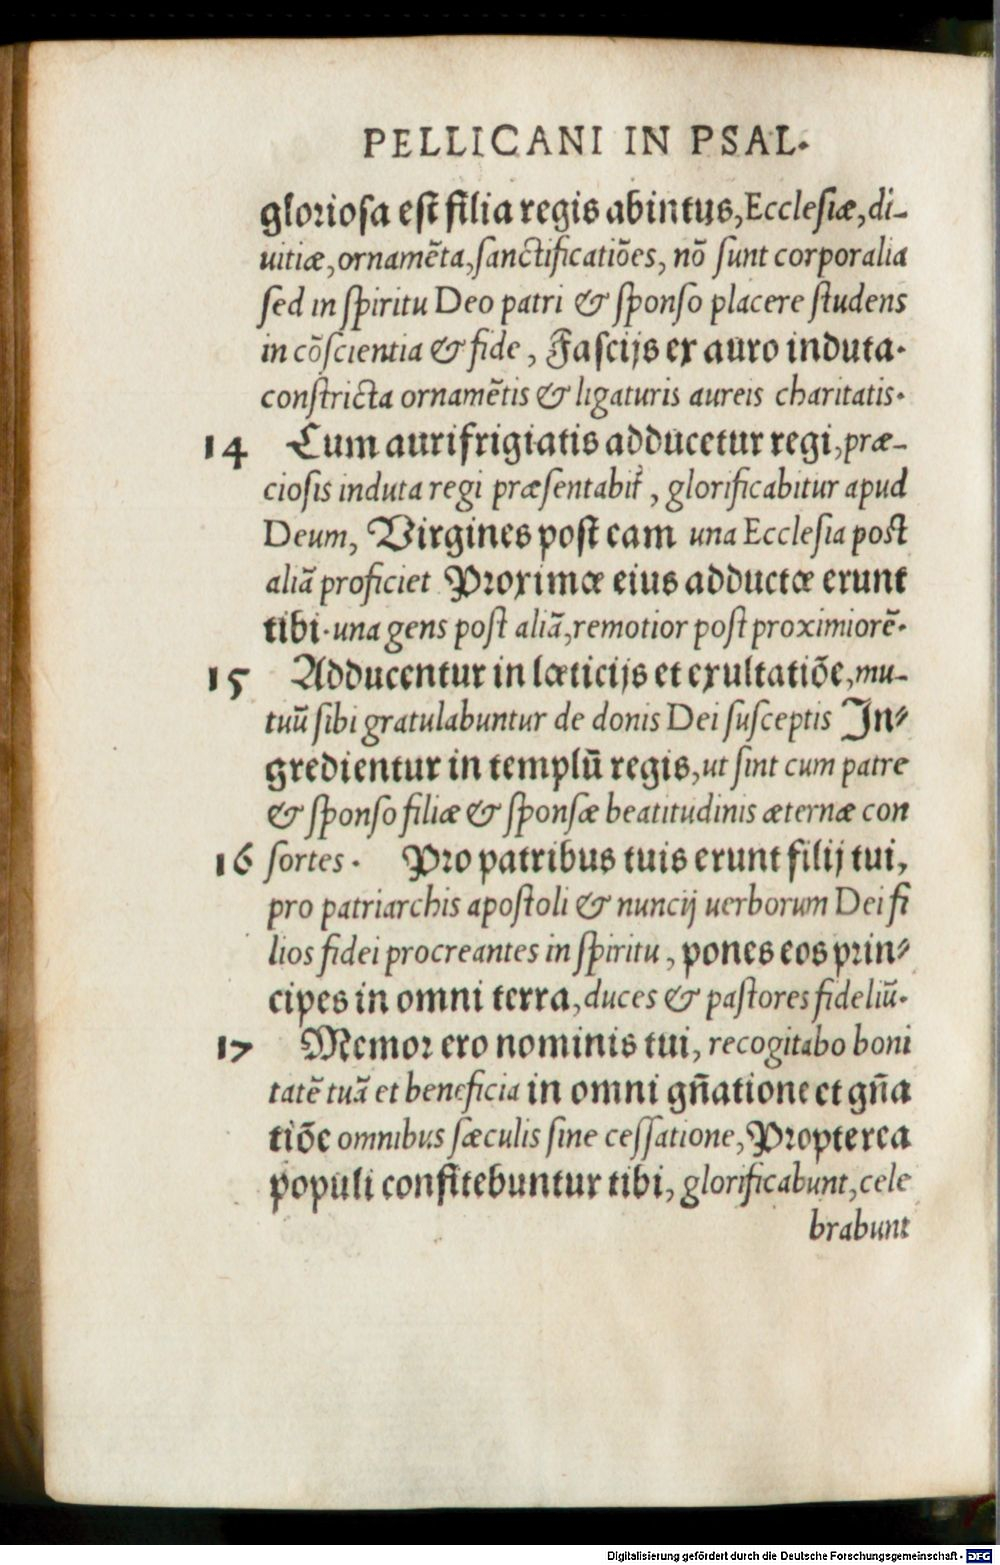 PELLICANI IN PSAL.
gloriosa est filia regis abintus, Ecclesiæ, di-
uitiæ, ornamẽta, sanctificatiões, nõ sunt corporalia
sed in spiritu Deo patri & sponso placere studens
in cõscientia & fide, Fascijs ex auro induta.
constricta ornamẽtis & ligaturis aureis charitatis.
14 Cum aurifrigiatis adducetur regi, præ-
ciosis induta regi præsentabit̃, glorificabitur apud
Deum, Virgines post eam una Ecclesia post
aliã proficiet Proximæ eius adductæ erunt
tibi. una gens post aliã, remotior post proximiorẽ.
15 Adducentur in læticijs et exultatiõe, mu-
tuũ sibi gratulabuntur de donis Dei susceptis In-
gredientur in templũ regis, ut sint cum patre
& sponso filiæ & sponsæ beatitudinis æternæ con
16 sortes. Pro patribus tuis erunt filij tui,
pro patriarchis apostoli & nuncij uerborum Dei fi
lios fidei procreantes in spiritu, pones eos prin-
cipes in omni terra, duces & pastores fideliũ.
17 Memor ero nominis tui, recogitabo boni
tatẽ tuã et beneficia in omni gñatione et gña
tiõe omnibus sæculis sine cessatione, Propterea
populi confitebuntur tibi, glorificabunt, cele
brabunt
Digitalisierung gefördert durch die Deutsche Forschungsgemeinschaft - DFG